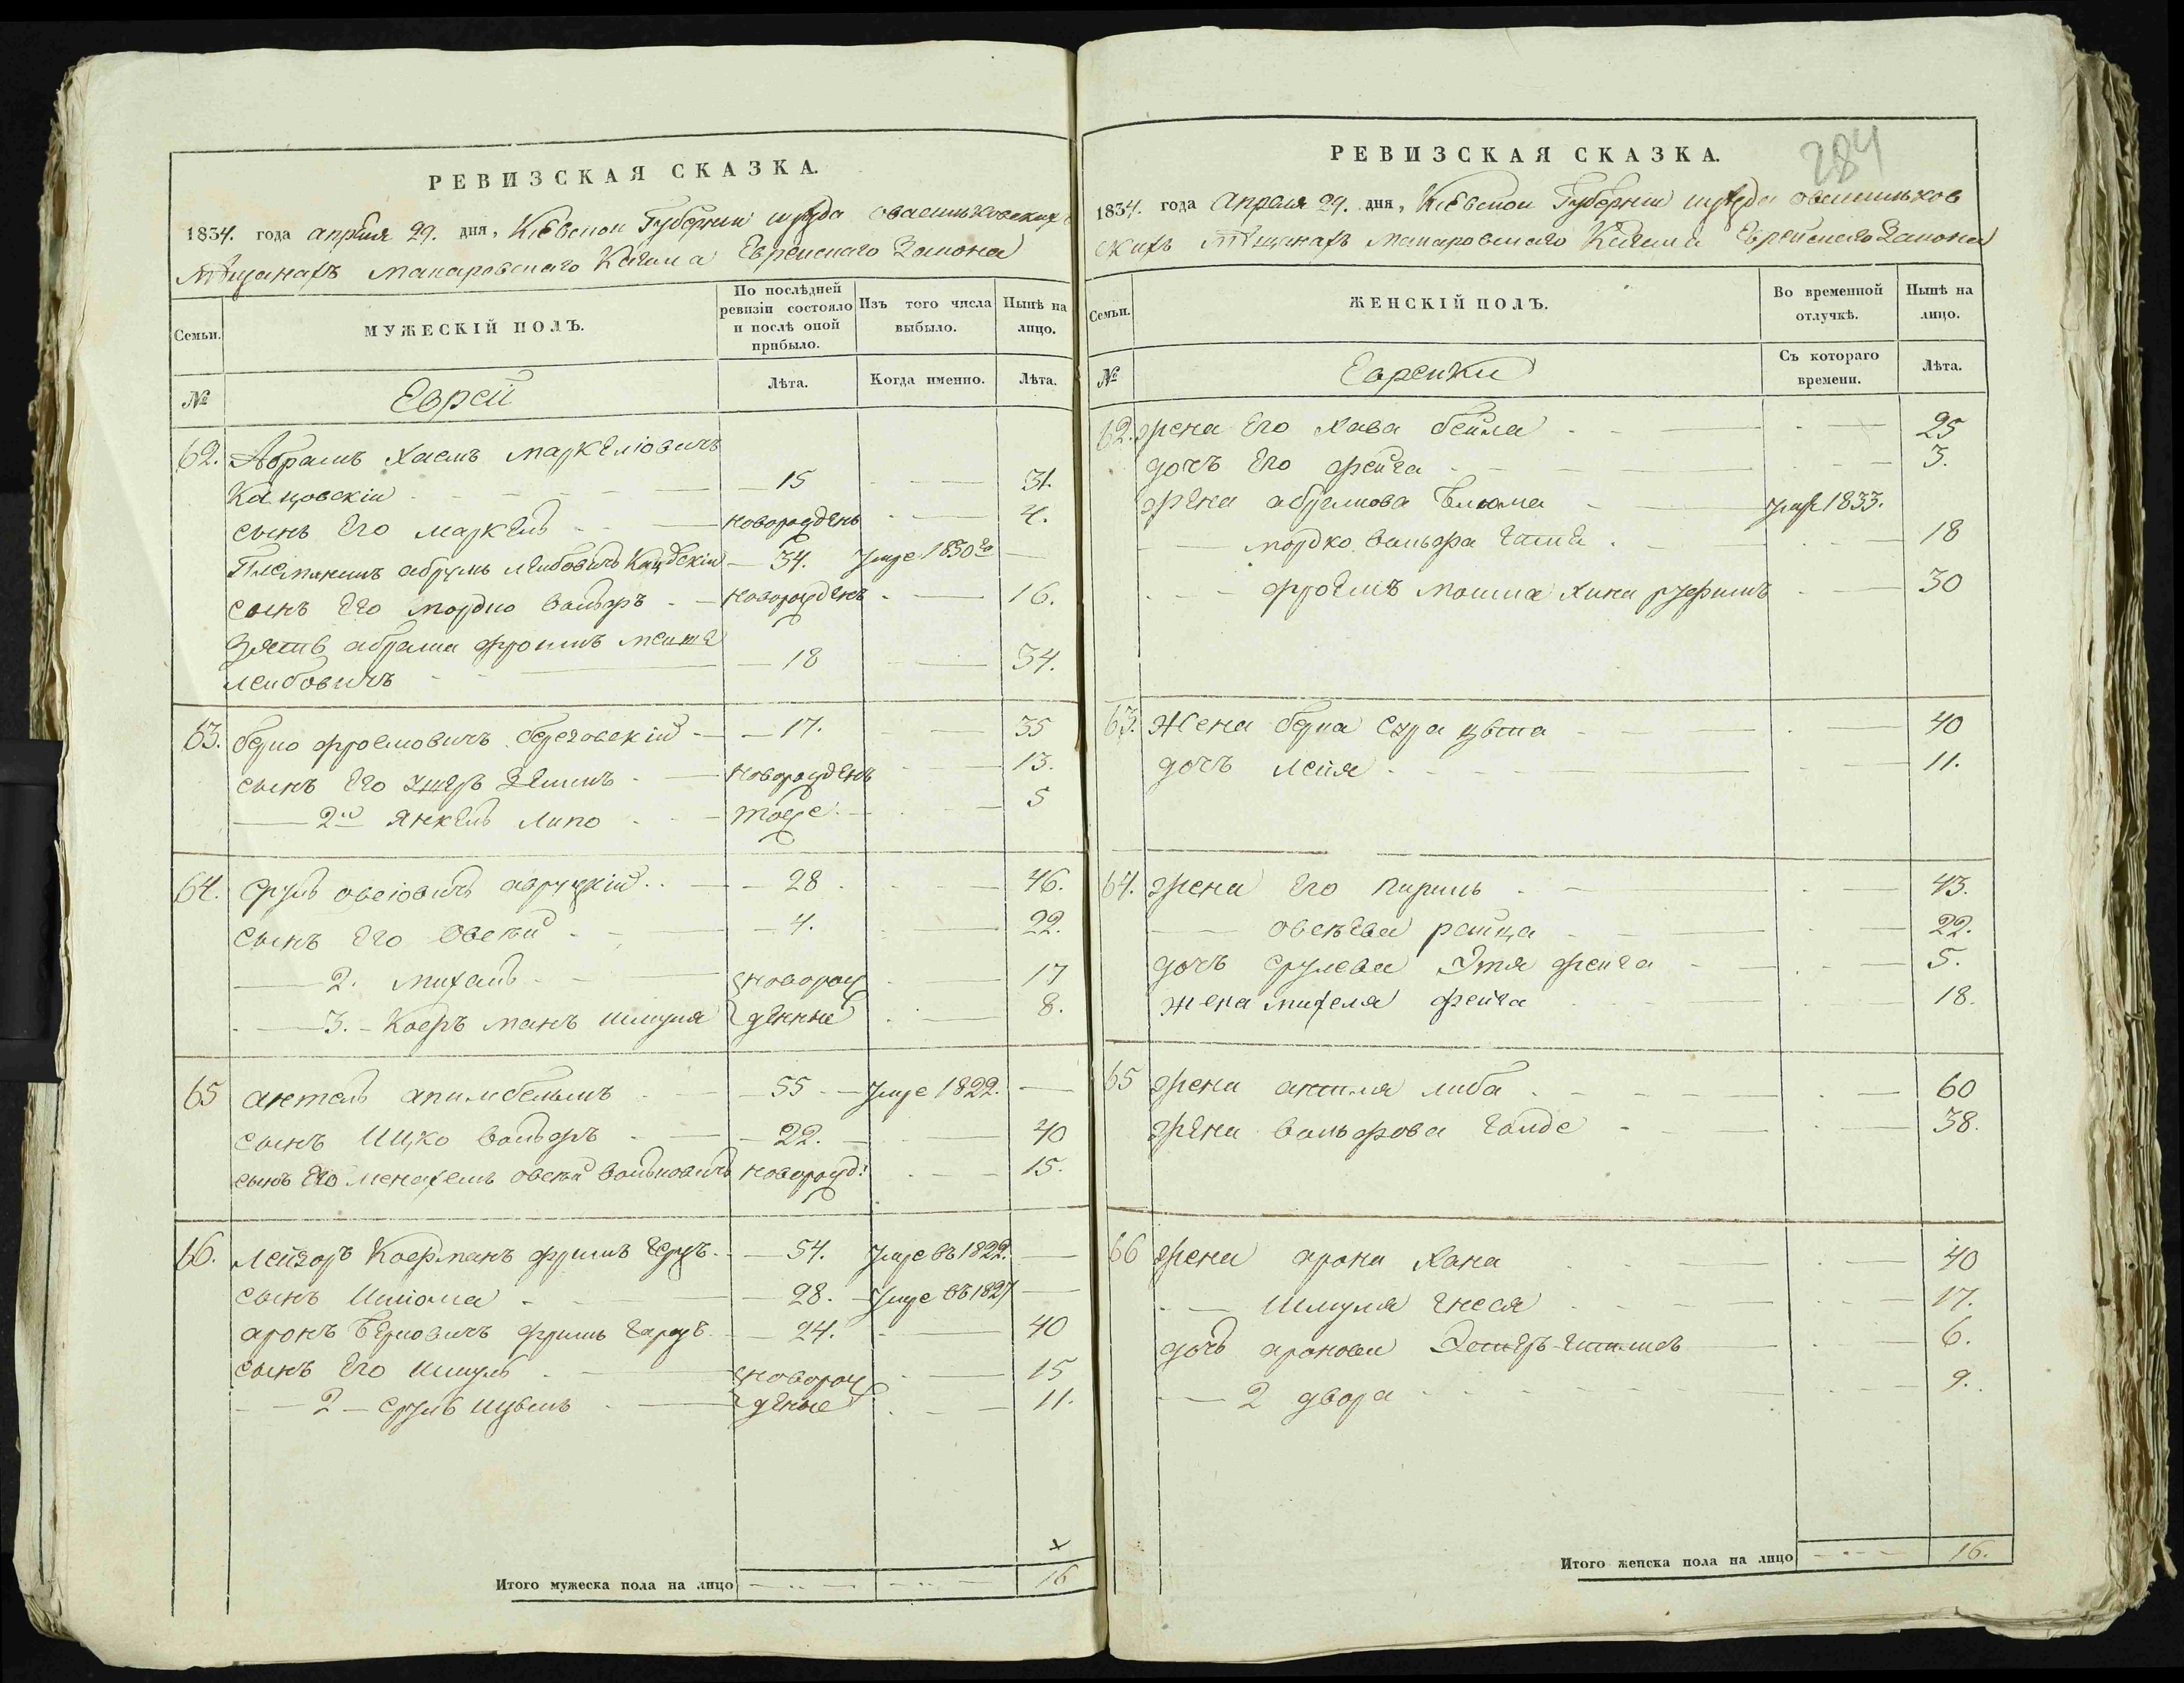 РЕВИЗСКАЯ СКАЗКА.
1834. года апреля 29. дня, Кіевской Губерніи уезда о васильковскихъ
мѣщанахъ Макаровскаго Кагала Еврейскаго Закона
Семьи.
МУЖЕСКІЙ ПОЛЪ.
По послѣдней ревизіи состояло и послѣ оной прибыло.
Изъ того числа выбыло.
Нынѣ на лицо.
№
Еврей
Лѣта.
Когда именно.
Лѣта.
62. Абрамъ Хаемъ Маркелювичъ
Кацовскій 15 31.
сынъ его Маркель новорожденъ 4.
Племяникъ абрумъ Лейбовичъ 34. Умре 1830го
сынъ его мордко вольфъ новорожденъ 16.
зять абрама фроимъ
лейбовичъ 18 34.
63. берко фроемовичъ береговскій 17. 35
сынъ его новорожденъ 13.
2й Янкель Липо тоже 5
64. Сруль овсіовичъ авруцкій 28 46.
сынъ его Овсѣй 4. 22.
2. михаль новорож 17
3. Кофъ манъ шмуля денные 8.
65 антель 55 Умре 1822.
сынъ Ицко вольфъ 22. 40
сынъ его Менахемъ овсѣй вольковичъ новорожд: 15.
66. Лейзоръ Кофманъ 54. Умре въ 1822.
сынъ Шліома 28. Умре въ 1827
аронъ Берковичъ 24. 40
сынъ его шмуль новорож 15
2 сруль денные 11.
Итого мужеска пола на лицо 16
РЕВИЗСКАЯ СКАЗКА.
284
1834. года Апреля 29. дня, Кіевской Губерніи уезда о васильков
скихъ мѣщанахъ Макаровскаго Кагала Еврейскаго Закона
Семьи.
ЖЕНСКІЙ ПОЛЪ.
Во временной отлучкѣ.
Нынѣ на лицо.
№
Еврейки
Съ котораго времени.
Лѣта.
62. жена его Хава бейла 25
дочъ его фейга 3.
жена абрамова Блюма умре 1833.
мордко вольфа 18
30
63. Жена берка Сура 40
дочъ Лейя 11.
64. жена его 43.
овсѣева райца 22.
дочъ срулева Этя фейга 5.
жена михеля фейга 18.
65 жена либа 60
жена вольфова Голде 38.
66 жена арона Хана 40
шмуля Гнеся 17.
дочъ аронова 6.
2 двора 9.
Итого женска пола на лицо 16.